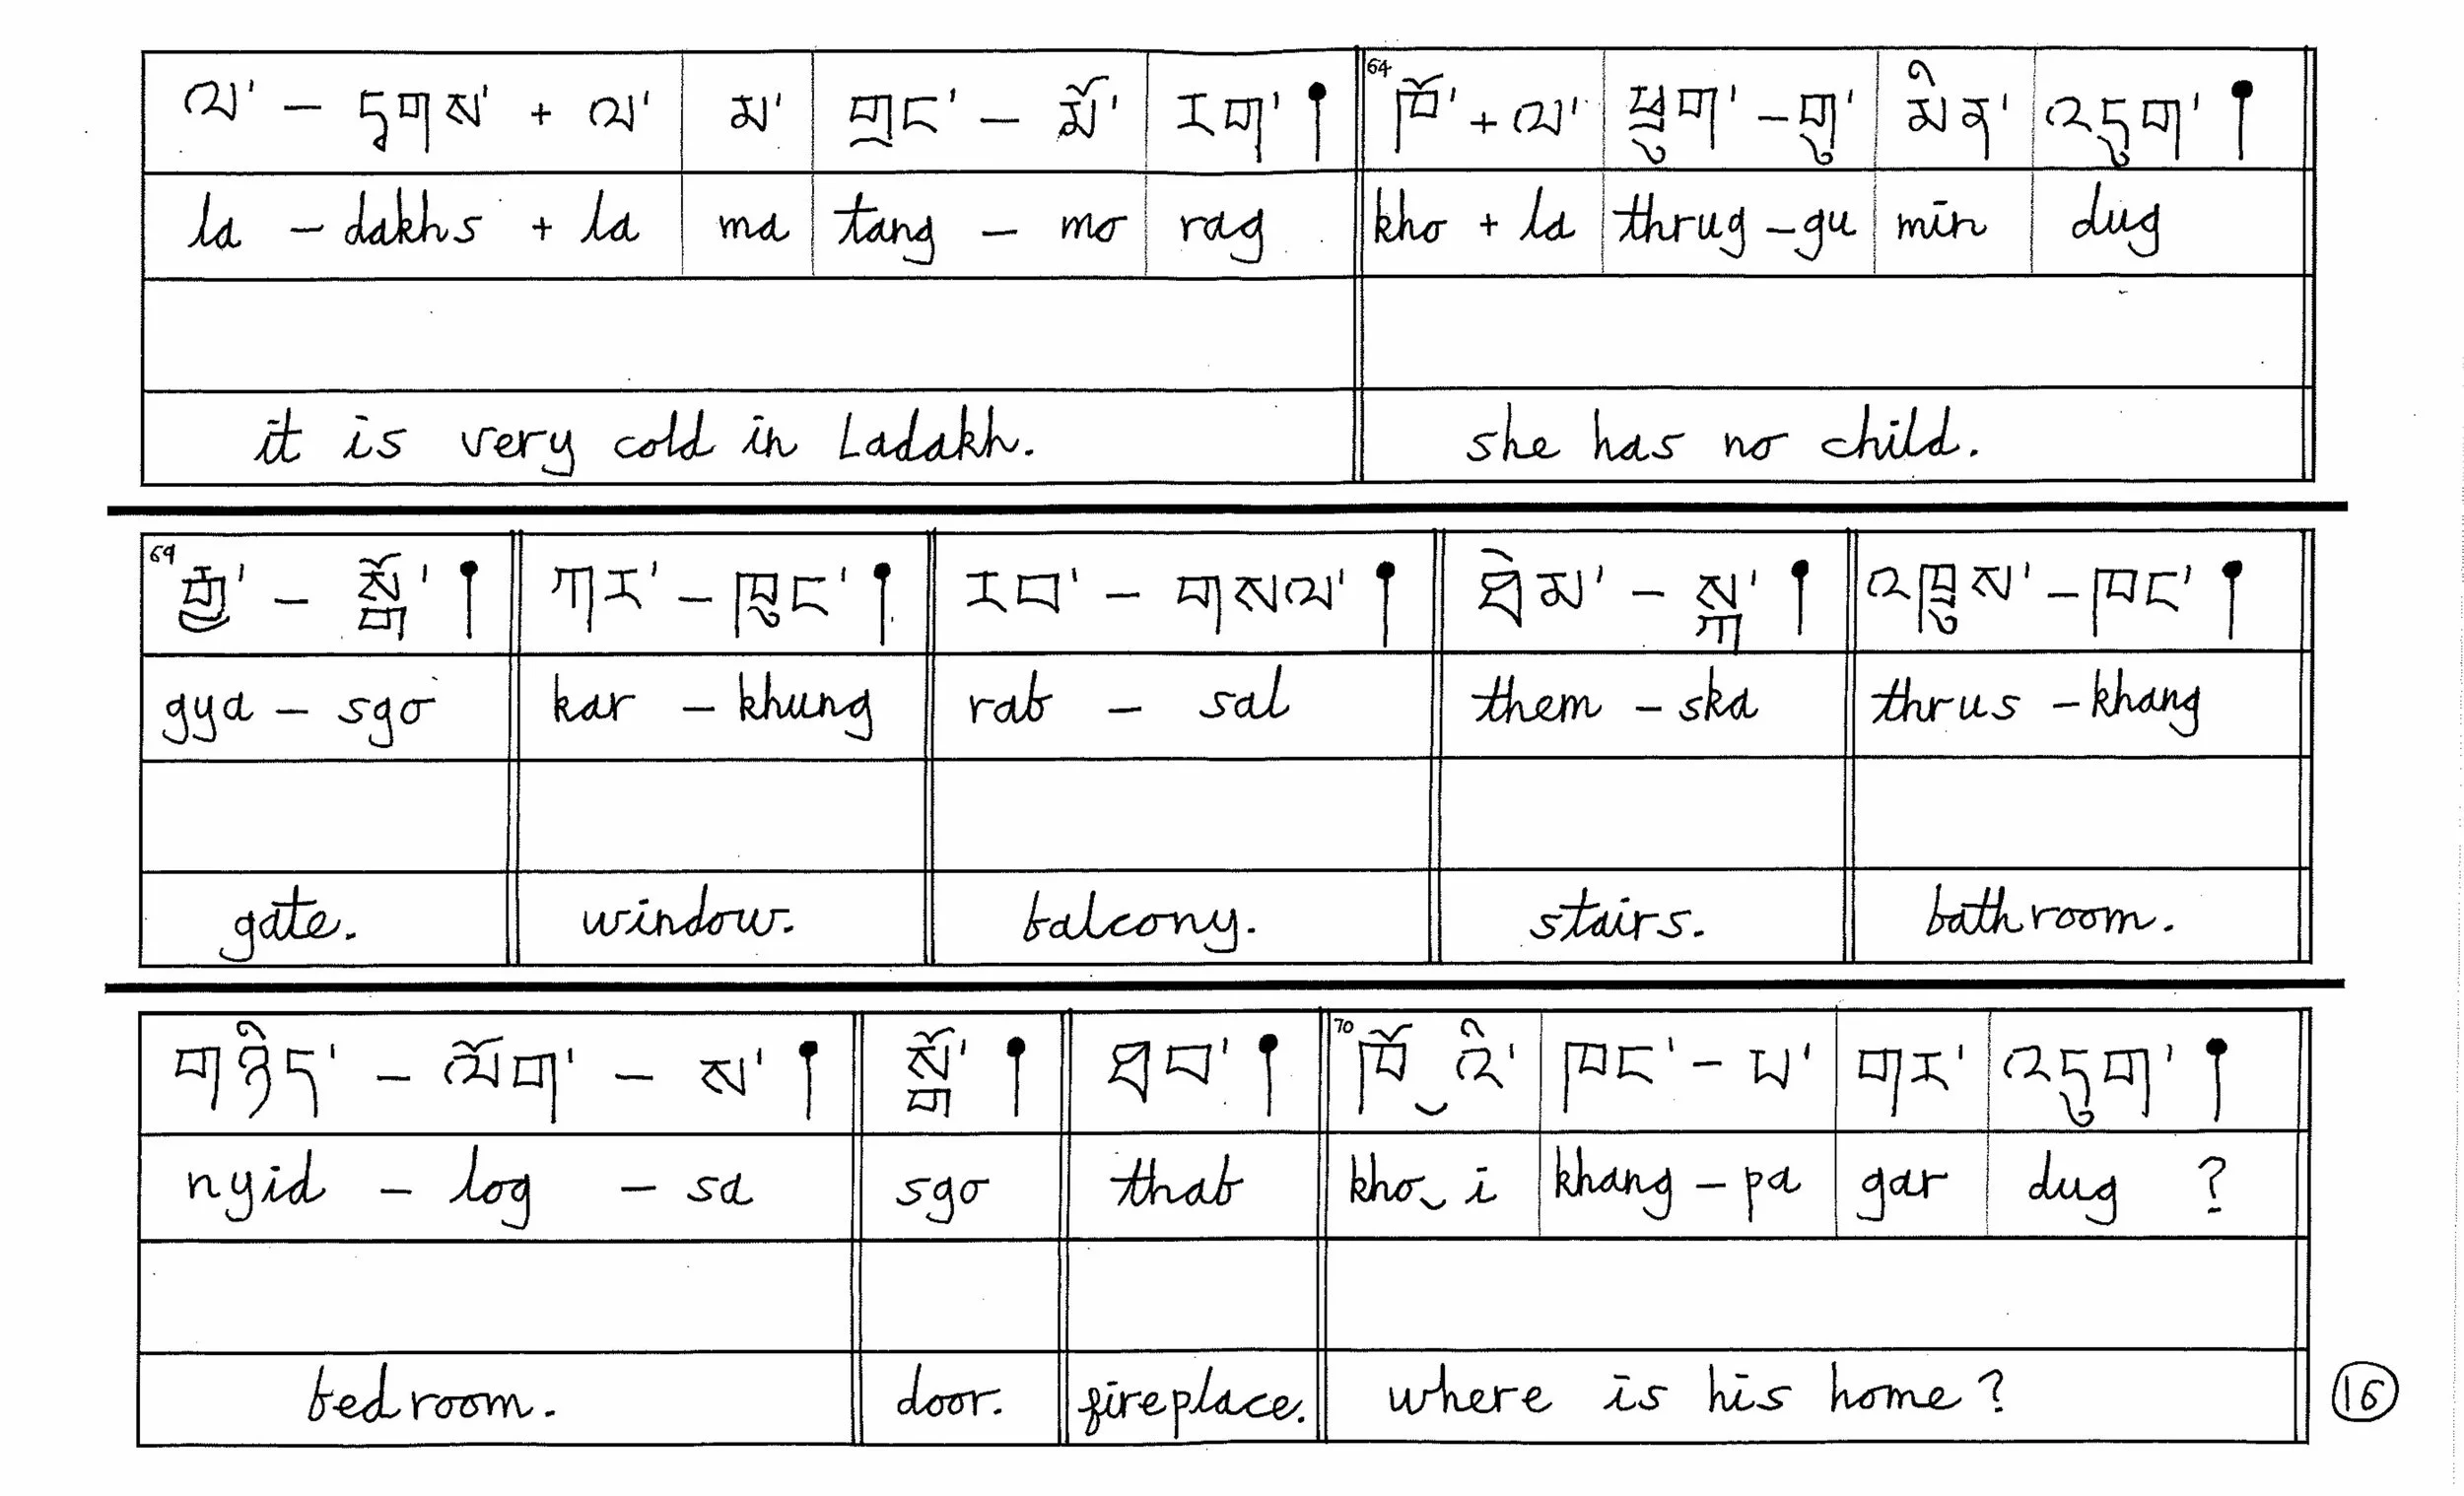 ལ་ – དྭགས་ + ལ་ མ་ གྲང་ – མོ་ རག་ ། 64 ཁོ་ + ལ་ ཕྲུག་ – གུ་ མིན་ འདུག་ །
la – dakhs + la ma tang – mo rag kho + la thrug – gu min dug
it is very cold in Ladakh. she has no child.
69 རྒྱ་ – སྒོ་ ། ཀར་ – ཁུང་ ། རབ་ – གསལ་ ། ཐེམ་ – སྐ་ ། འཁྲུས་ – ཁང་ །
gya – sgo kar – khung rab – sal them – ska thrus – khang
gate. window. balcony. stairs. bathroom.
གཉིད་ – ལོག་ – ས་ ། སྒོ་ ། ཐབ་ ། 70 ཁོ‿འི་ ཁང་ – པ་ གར་ འདུག་ །
nyid – log – sa sgo thab kho‿i khang – pa gar dug ?
bedroom. door. fireplace. where is his home ?
16